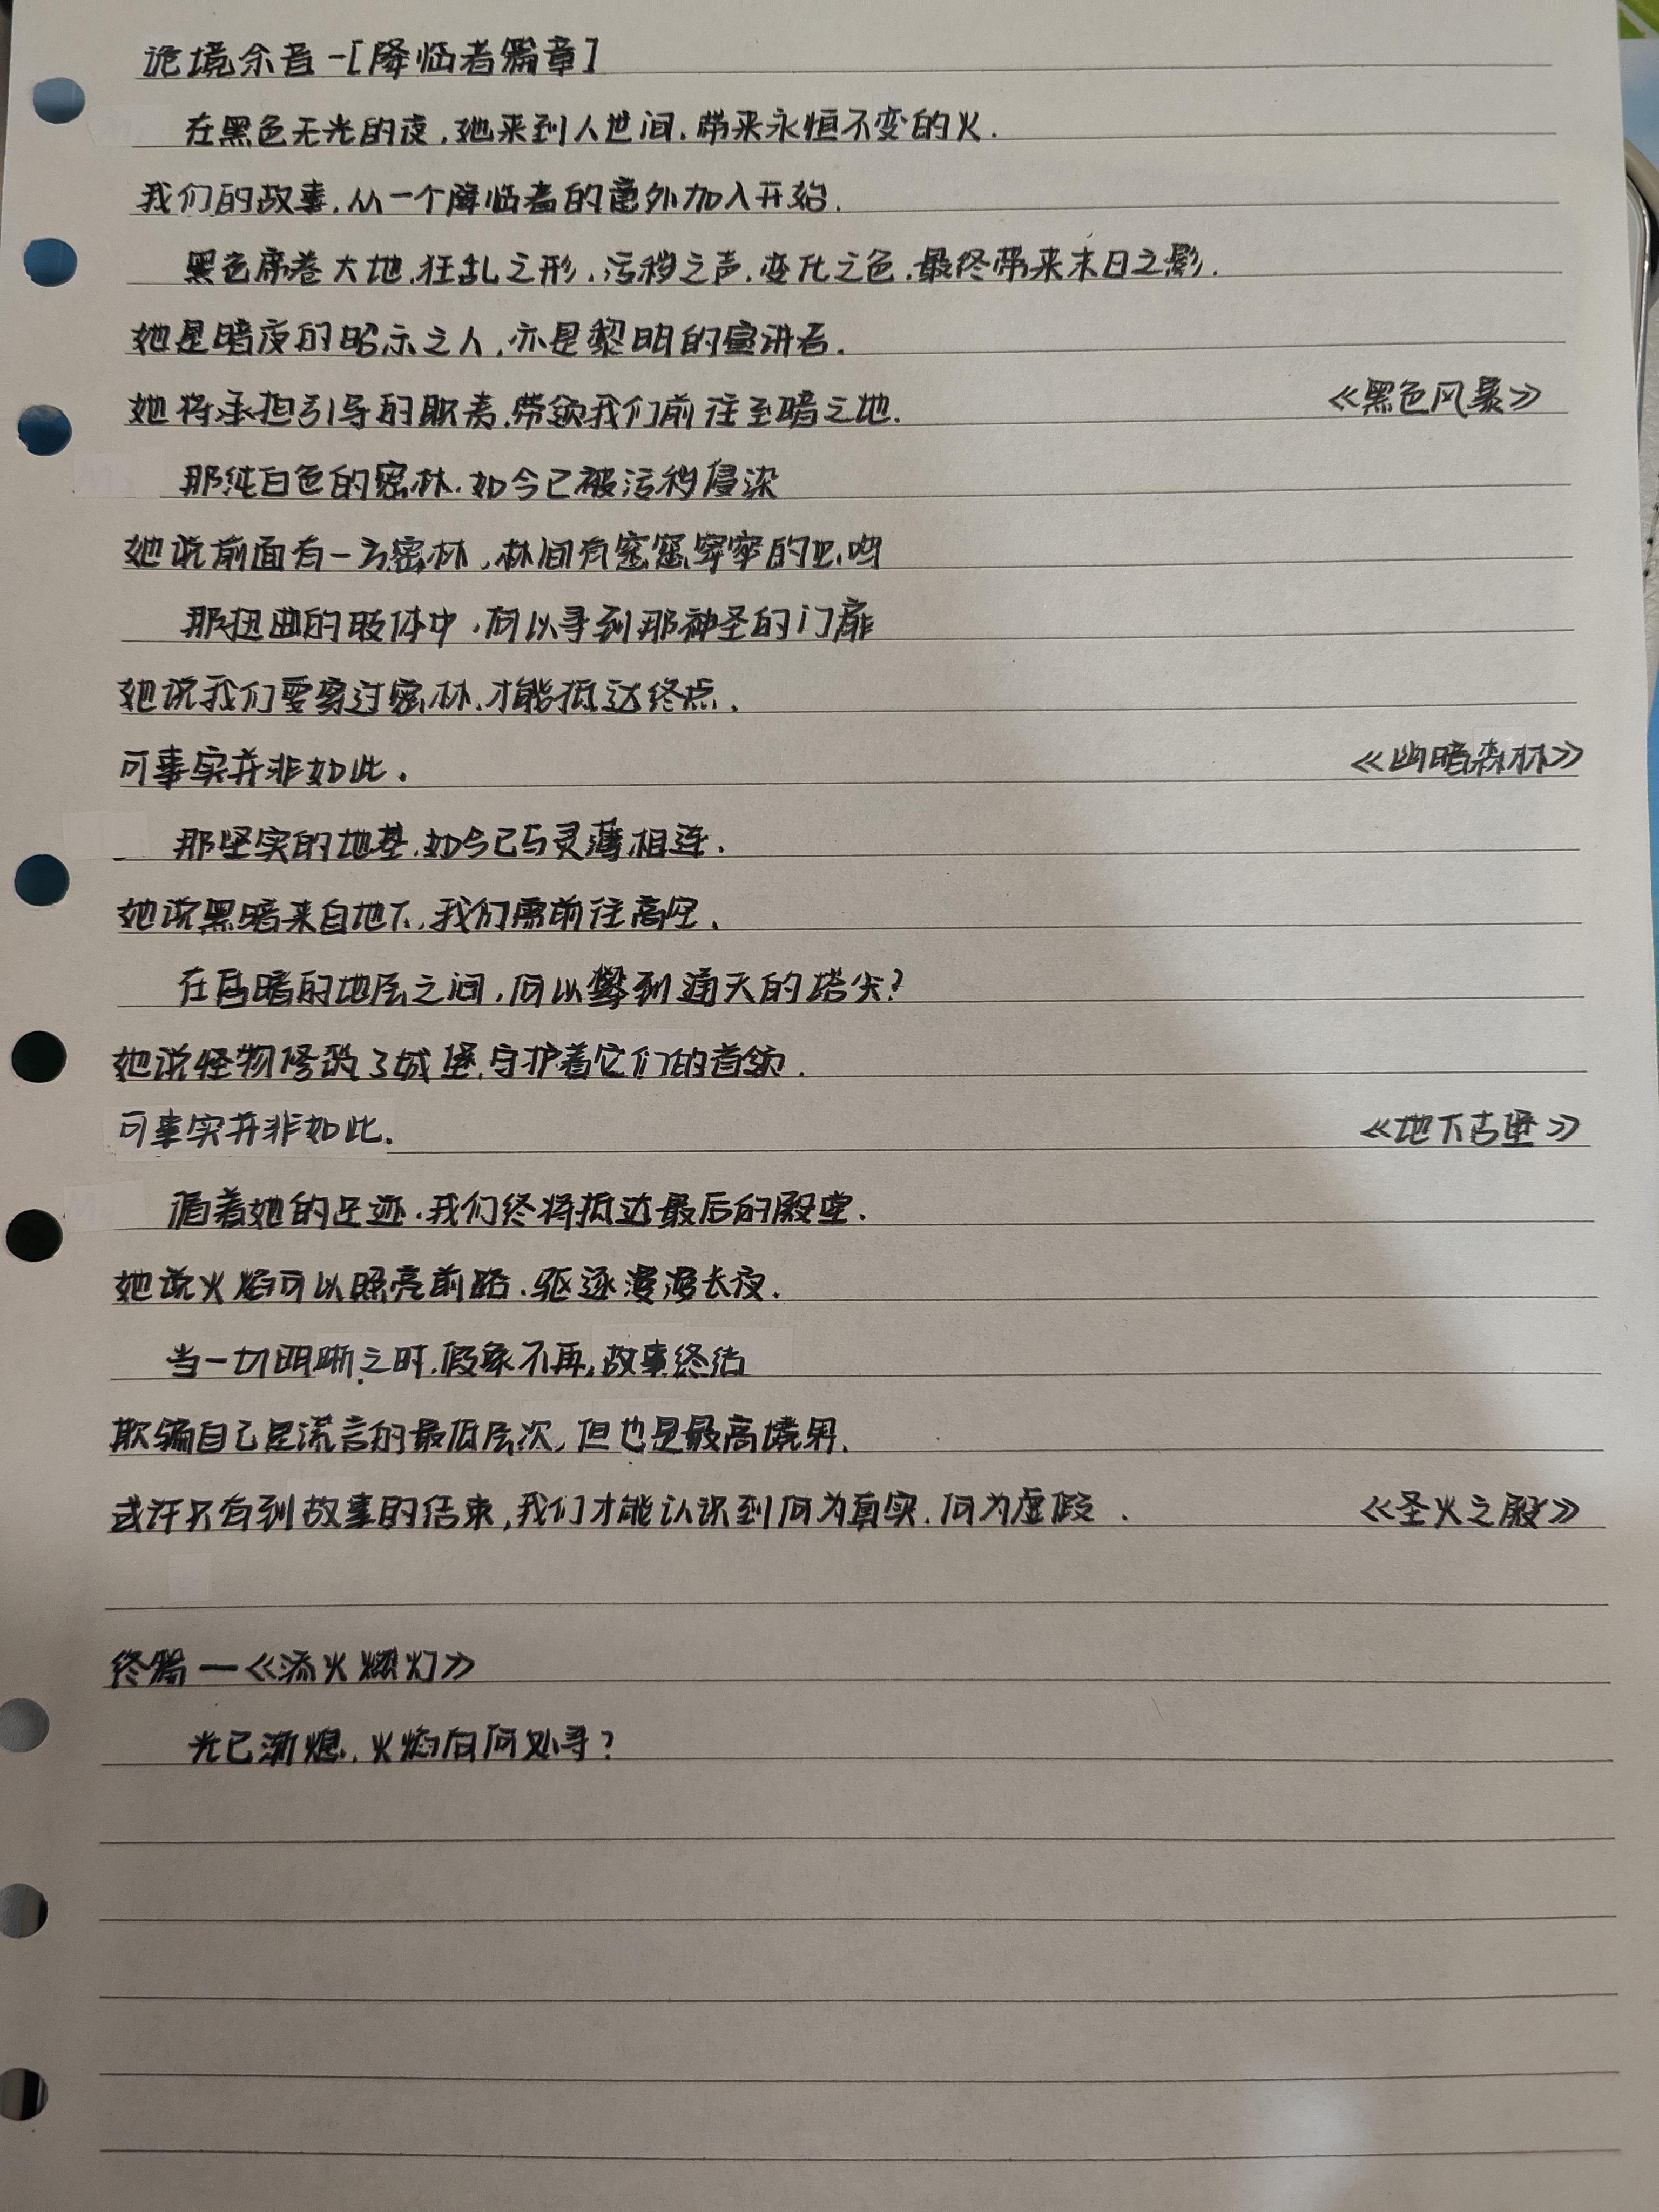 诡境余音-[降临者篇章]
在黑色无光的夜,她来到人世间,带来永恒不变的火.
我们的故事,从一个降临者的意外加入开始.
黑色席卷大地,狂乱之形,污秽之声,变化之色,最终带来末日之影.
她是暗夜的昭示之人,亦是黎明的宣讲者.
她将承担引导的职责,带领我们前往至暗之地. 《黑色风暴》
那纯白色的密林,如今已被污秽侵染
她说前面有一方密林,林间有窸窸窣窣的
那扭曲的肢体中,何以寻到那神圣的门扉
她说我们要穿过密林,才能抵达终点.
可事实并非如此. 《幽暗森林》
那坚实的地基,如今已与灵薄相连.
她说黑暗来自地下,我们需前往高空.
在昏暗的地层之间,何以攀到通天的塔尖?
她说怪物修筑了城堡,守护着它们的首领.
可事实并非如此. 《地下古堡》
循着她的足迹,我们终将抵达最后的殿堂.
她说火焰可以照亮前路,驱逐漫漫长夜.
当一切明晰之时,假象不再,故事终结
欺骗自己是谎言的最低层次,但也是最高境界.
或许只有到故事的结束,我们才能认识到何为真实,何为虚假. 《圣火之殿》
终篇—《添火燃灯》
光已渐熄,火焰向何处寻?